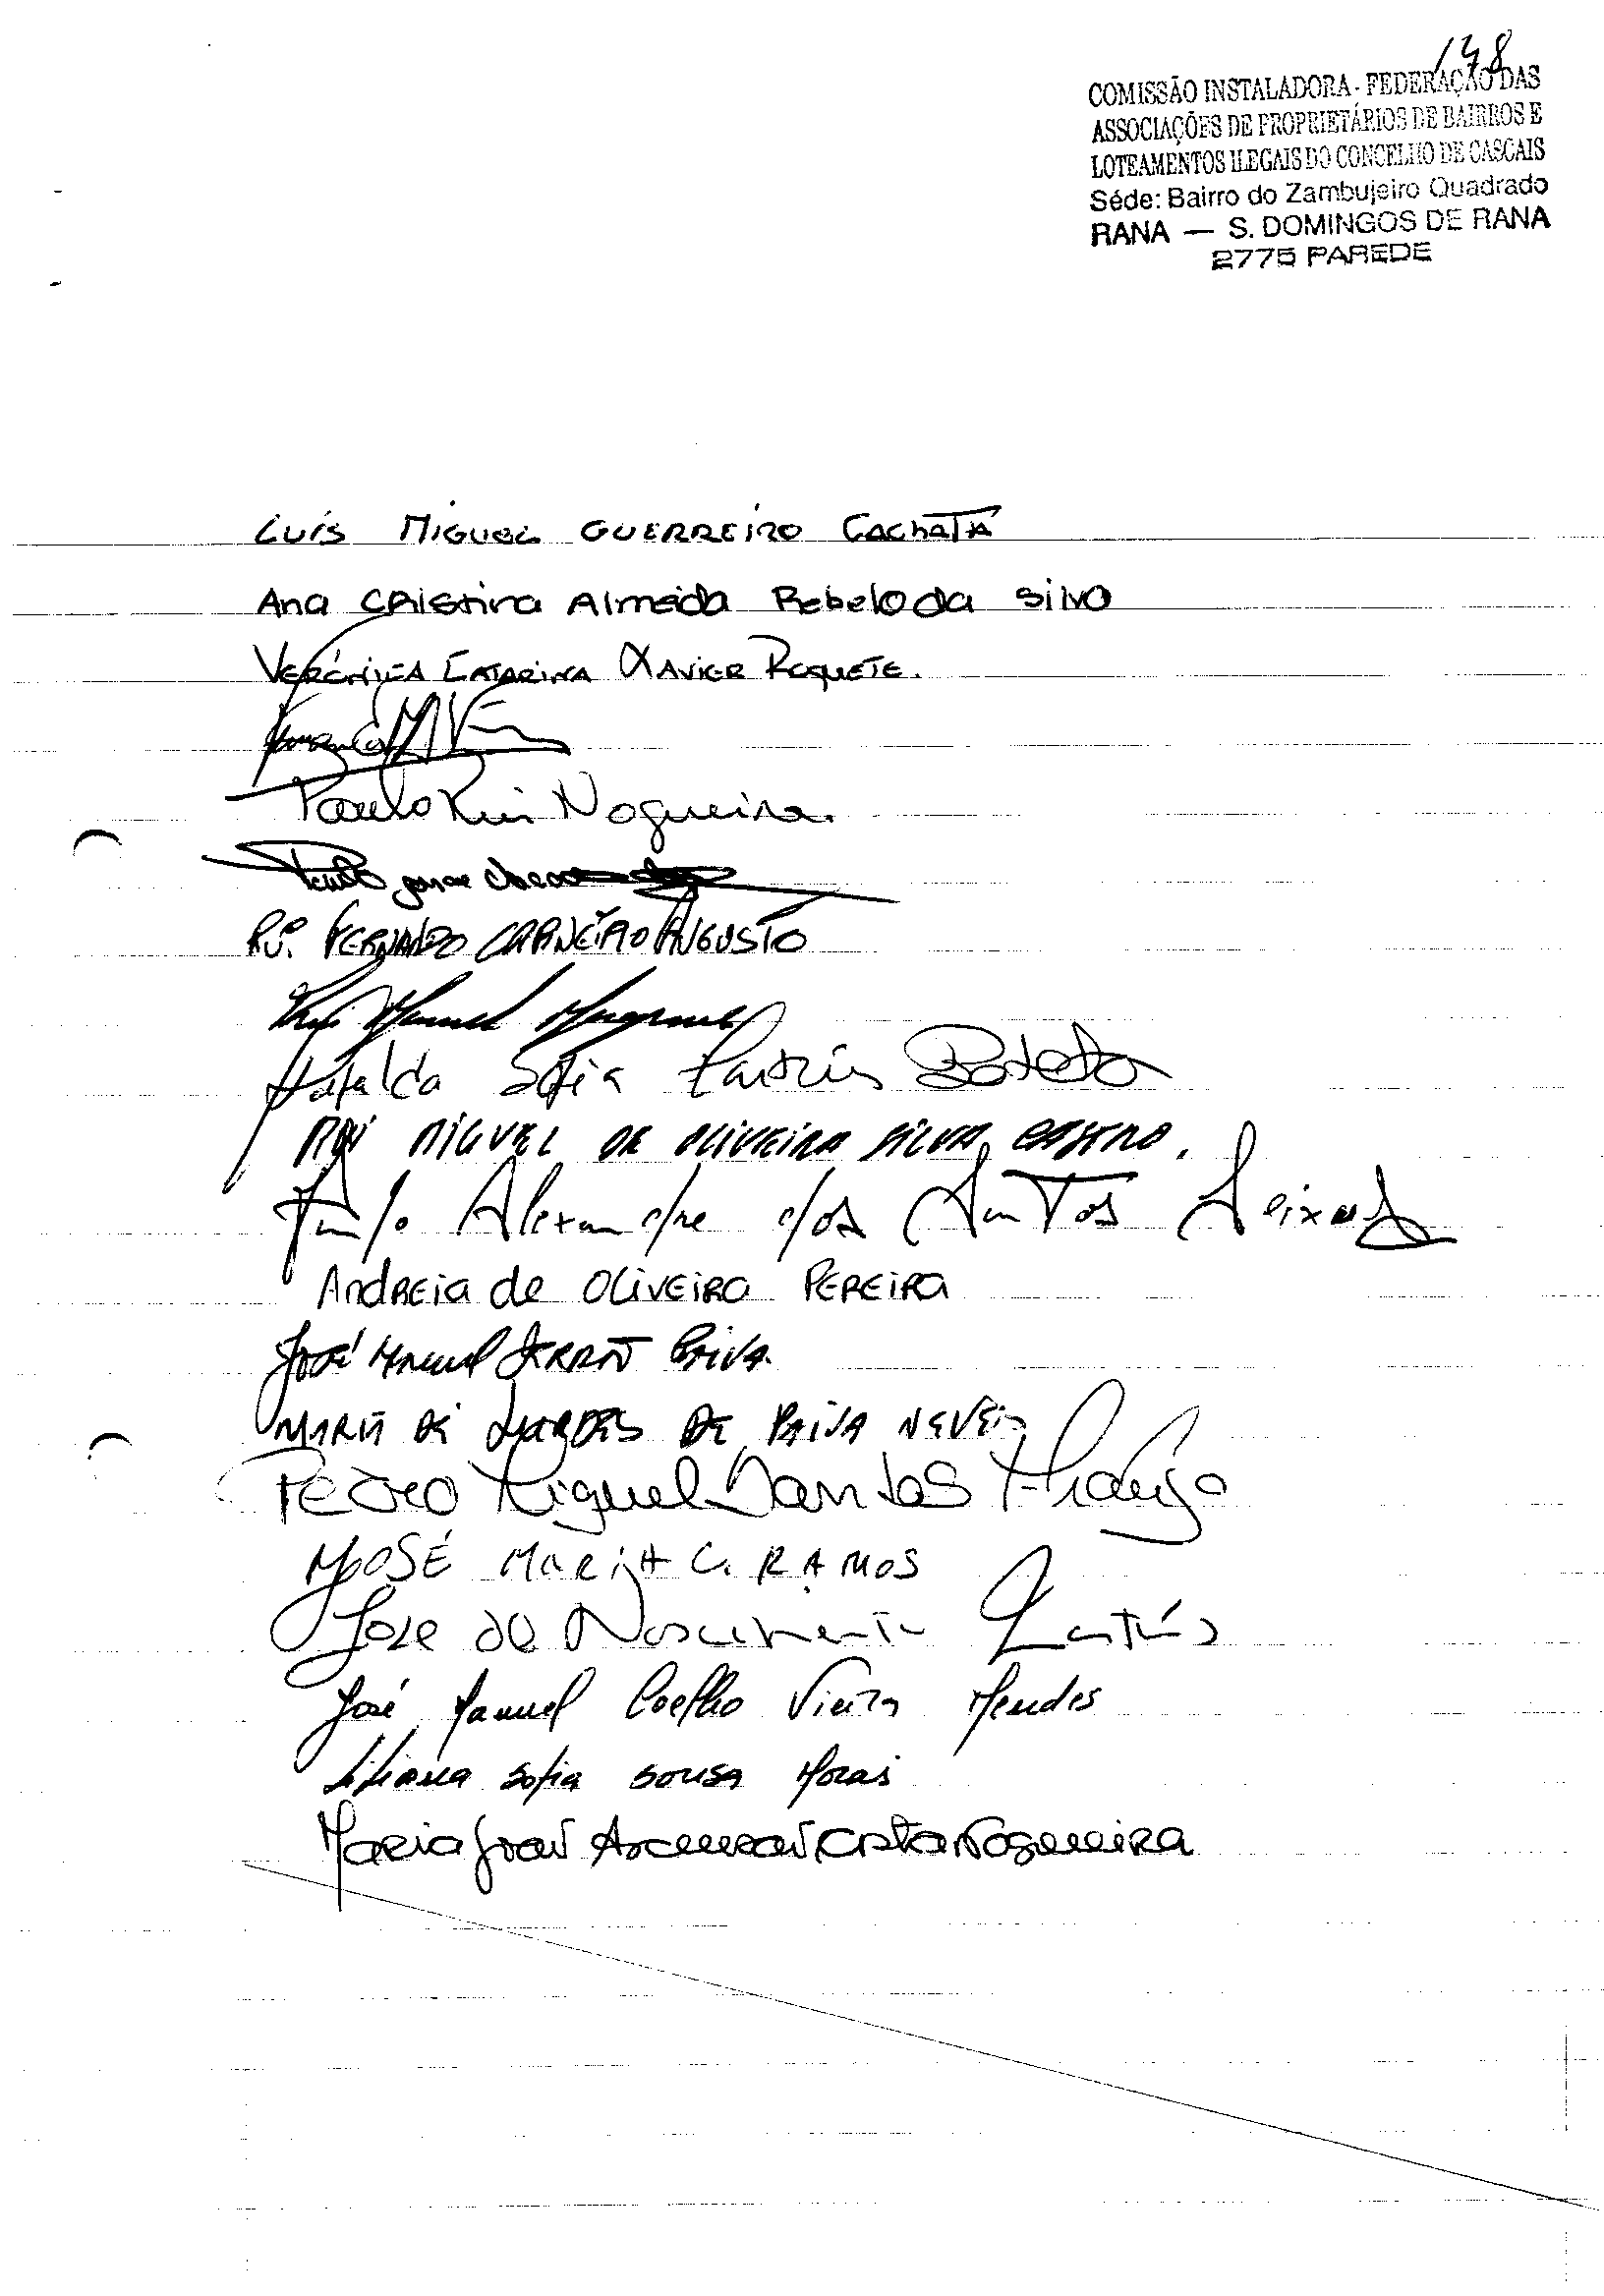 148
COMISSÃO INSTALADORA - FEDERAÇÃO DAS
ASSOCIAÇÕES DE PROPRIETÁRIOS DE BAIRROS E
LOTEAMENTOS ILEGAIS DO CONCELHO DE CASCAIS
Séde: Bairro do Zambujeiro Quadrado
RANA — S. DOMINGOS DE RANA
2775 PAREDE
Luís Miguel Guerreiro Cachatá
Ana Cristina Almeida Rebelo da Silva
Verónica Catarina Xavier Roquete.
Paulo Rui Nogueira
Paulo
Rui Fernando Carneiro Augusto
Manuel
Mafalda Sofia Martins Botelho
Rui Miguel de Oliveira Silva Castro.
Paulo Alexandre dos Santos Seixas
Andreia de Oliveira Pereira
José Manuel Serrão Paiva
Maria de Lurdes de Paiva Neves
Pedro Miguel Santos Araújo
José Maria C. Ramos
José do Nascimento Martins
José Manuel Coelho Vieira Mendes
Liliana Sofia Sousa Morais
Maria João Ascensão Costa Nogueira